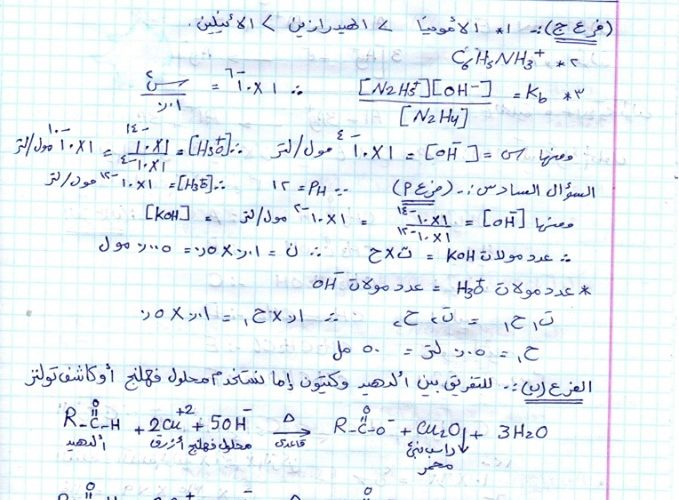 (فرع ج):- *١ الأمونيا > الهيدرازين > الأنيلين.
*٢ C6H5NH3+
*٣ Kb = [N2H5+][OH-] / [N2H4] ∴ ١×١٠-٦ = س٢ / ٠,٠١
ومنها س = [OH-] = ١×١٠-٤ مول/لتر ∴ [H3O+] = ١×١٠-١٤ / ١×١٠-٤ = ١×١٠-١٠ مول/لتر
السؤال السادس:- (فرع أ) ∵ PH = ١٢ ∴ [H3O+] = ١×١٠-١٢ مول/لتر
ومنها [OH-] = ١×١٠-١٤ / ١×١٠-١٢ = ١×١٠-٢ مول/لتر = [KOH]
∴ عدد مولات KOH = ت×ح ∴ ن = ٠,٠١ × ٠,٥ = ٠,٠٠٥ مول
* عدد مولات H3O+ = عدد مولات OH-
ت١ ح١ = ت٢ ح٢ ∴ ٠,١ × ح١ = ٠,٠١ × ٠,٥
ح١ = ٠,٠٥ لتر = ٥٠ مل
الفرع (ب):- للتفريق بين ألدهيد وكيتون إما نستخدم محلول فهلنج أو كاشف تولنز
R-C-H + 2Cu+2 + 5OH- Δ→ R-C-O- + Cu2O↓ + 3H2O
O O
ألدهيد محلول فهلنج أزرق قاعدي راسب بني
محمر